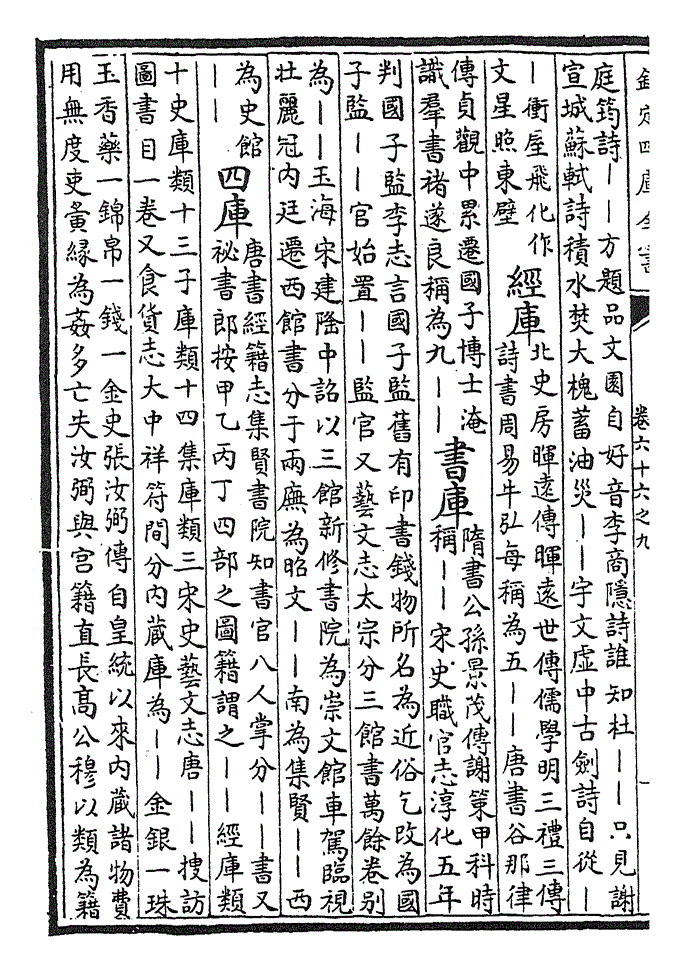 欽定四庫全書
卷六十六之九
庭筠詩——方題品文園自好音李商隱詩誰知杜——只見謝
宣城蘇軾詩積水焚大槐蓄油災——宇文虛中古劍詩自從—
—衝屋飛化作
文星照東壁
經庫
北史房暉遠傳暉遠世傳儒學明三禮三傳
詩書周易牛弘每稱為五——唐書谷那律
傳貞觀中累遷國子博士淹
識羣書褚遂良稱為九——
書庫
隋書公孫景茂傳謝策甲科時
稱——宋史職官志淳化五年
判國子監李志言國子監舊有印書錢物所名為近俗乞改為國
子監——官始置——監官又藝文志太宗分三館書萬餘卷别
為——玉海宋建隆中詔以三館新修書院為崇文館車駕臨視
壯麗冠内廷遷西館書分于兩廡為昭文——南為集賢——西
為史館
——
四庫
唐書經籍志集賢書院知書官八人掌分——書又
祕書郎按甲乙丙丁四部之圖籍謂之——經庫類
十史庫類十三子庫類十四集庫類三宋史藝文志唐——搜訪
圖書目一卷又食貨志大中祥符間分内蔵庫為——金銀一珠
玉香藥一錦帛一錢一金史張汝弼傳自皇統以來内蔵諸物費
用無度吏夤緣為姦多亡失汝弼與宫籍直長高公穆以類為籍